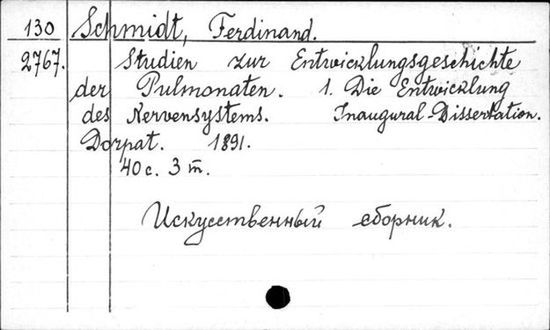 130 Schmidt, Ferdinand.
2767. Studien zur Entwicklungsgeschichte
der Pulmonaten. 1. Die Entwicklung
des Nervensystems. Inaugural-Dissertation.
Dorpat. 1891.
40 с. 3 т.
Искусственный сборник.